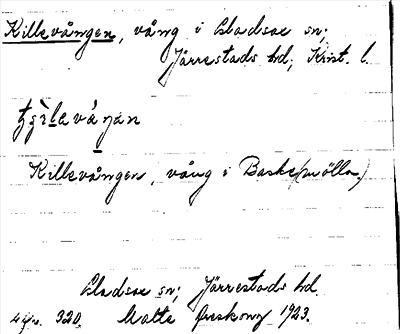 Killevången, vång i Gladsax sn;
Järrestads hd; Krist. l.
Killevången, vång i Baske(mölla)
Gladsax sn; Järrestads hd.
4 fjn. 320. Malte Areskoug 1923.